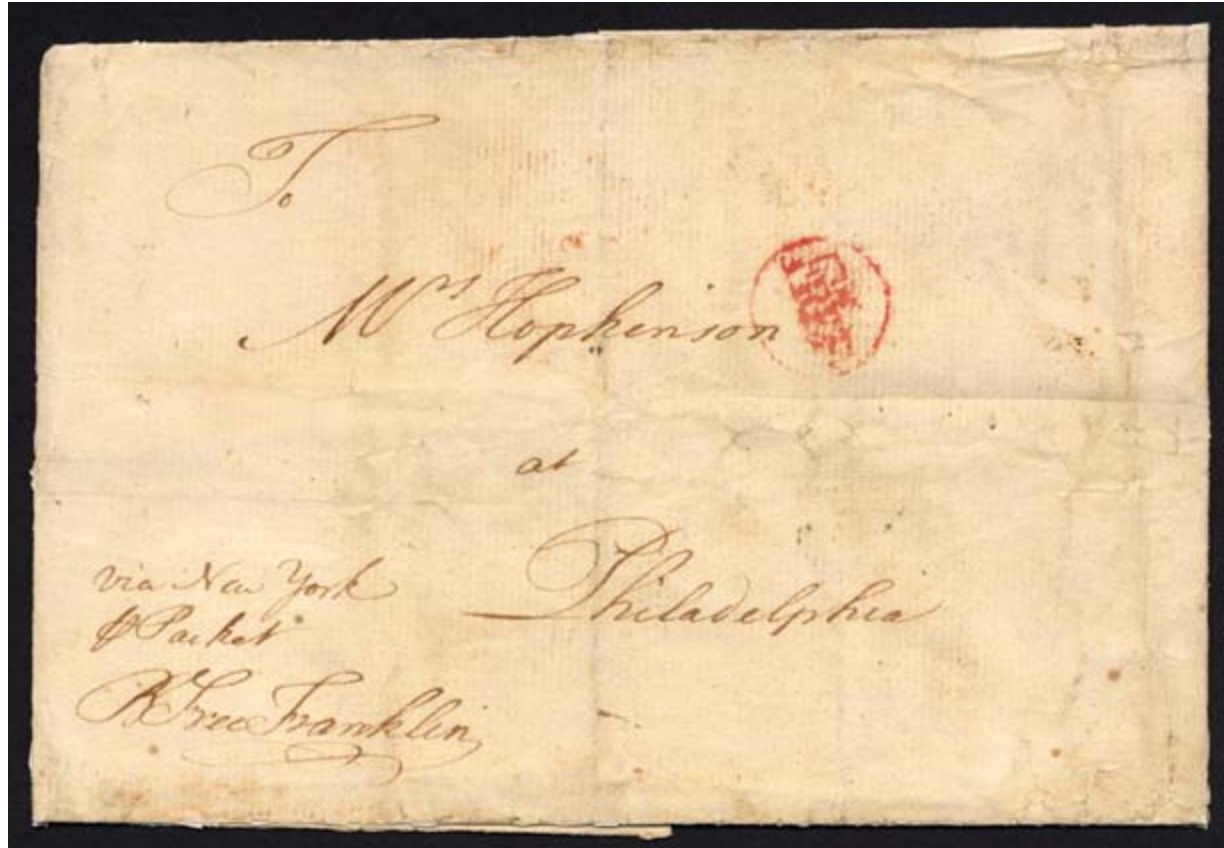 To
Mrs Hopkinson
at
Philadelphia
via New York
⅌ Packet
B Free Franklin